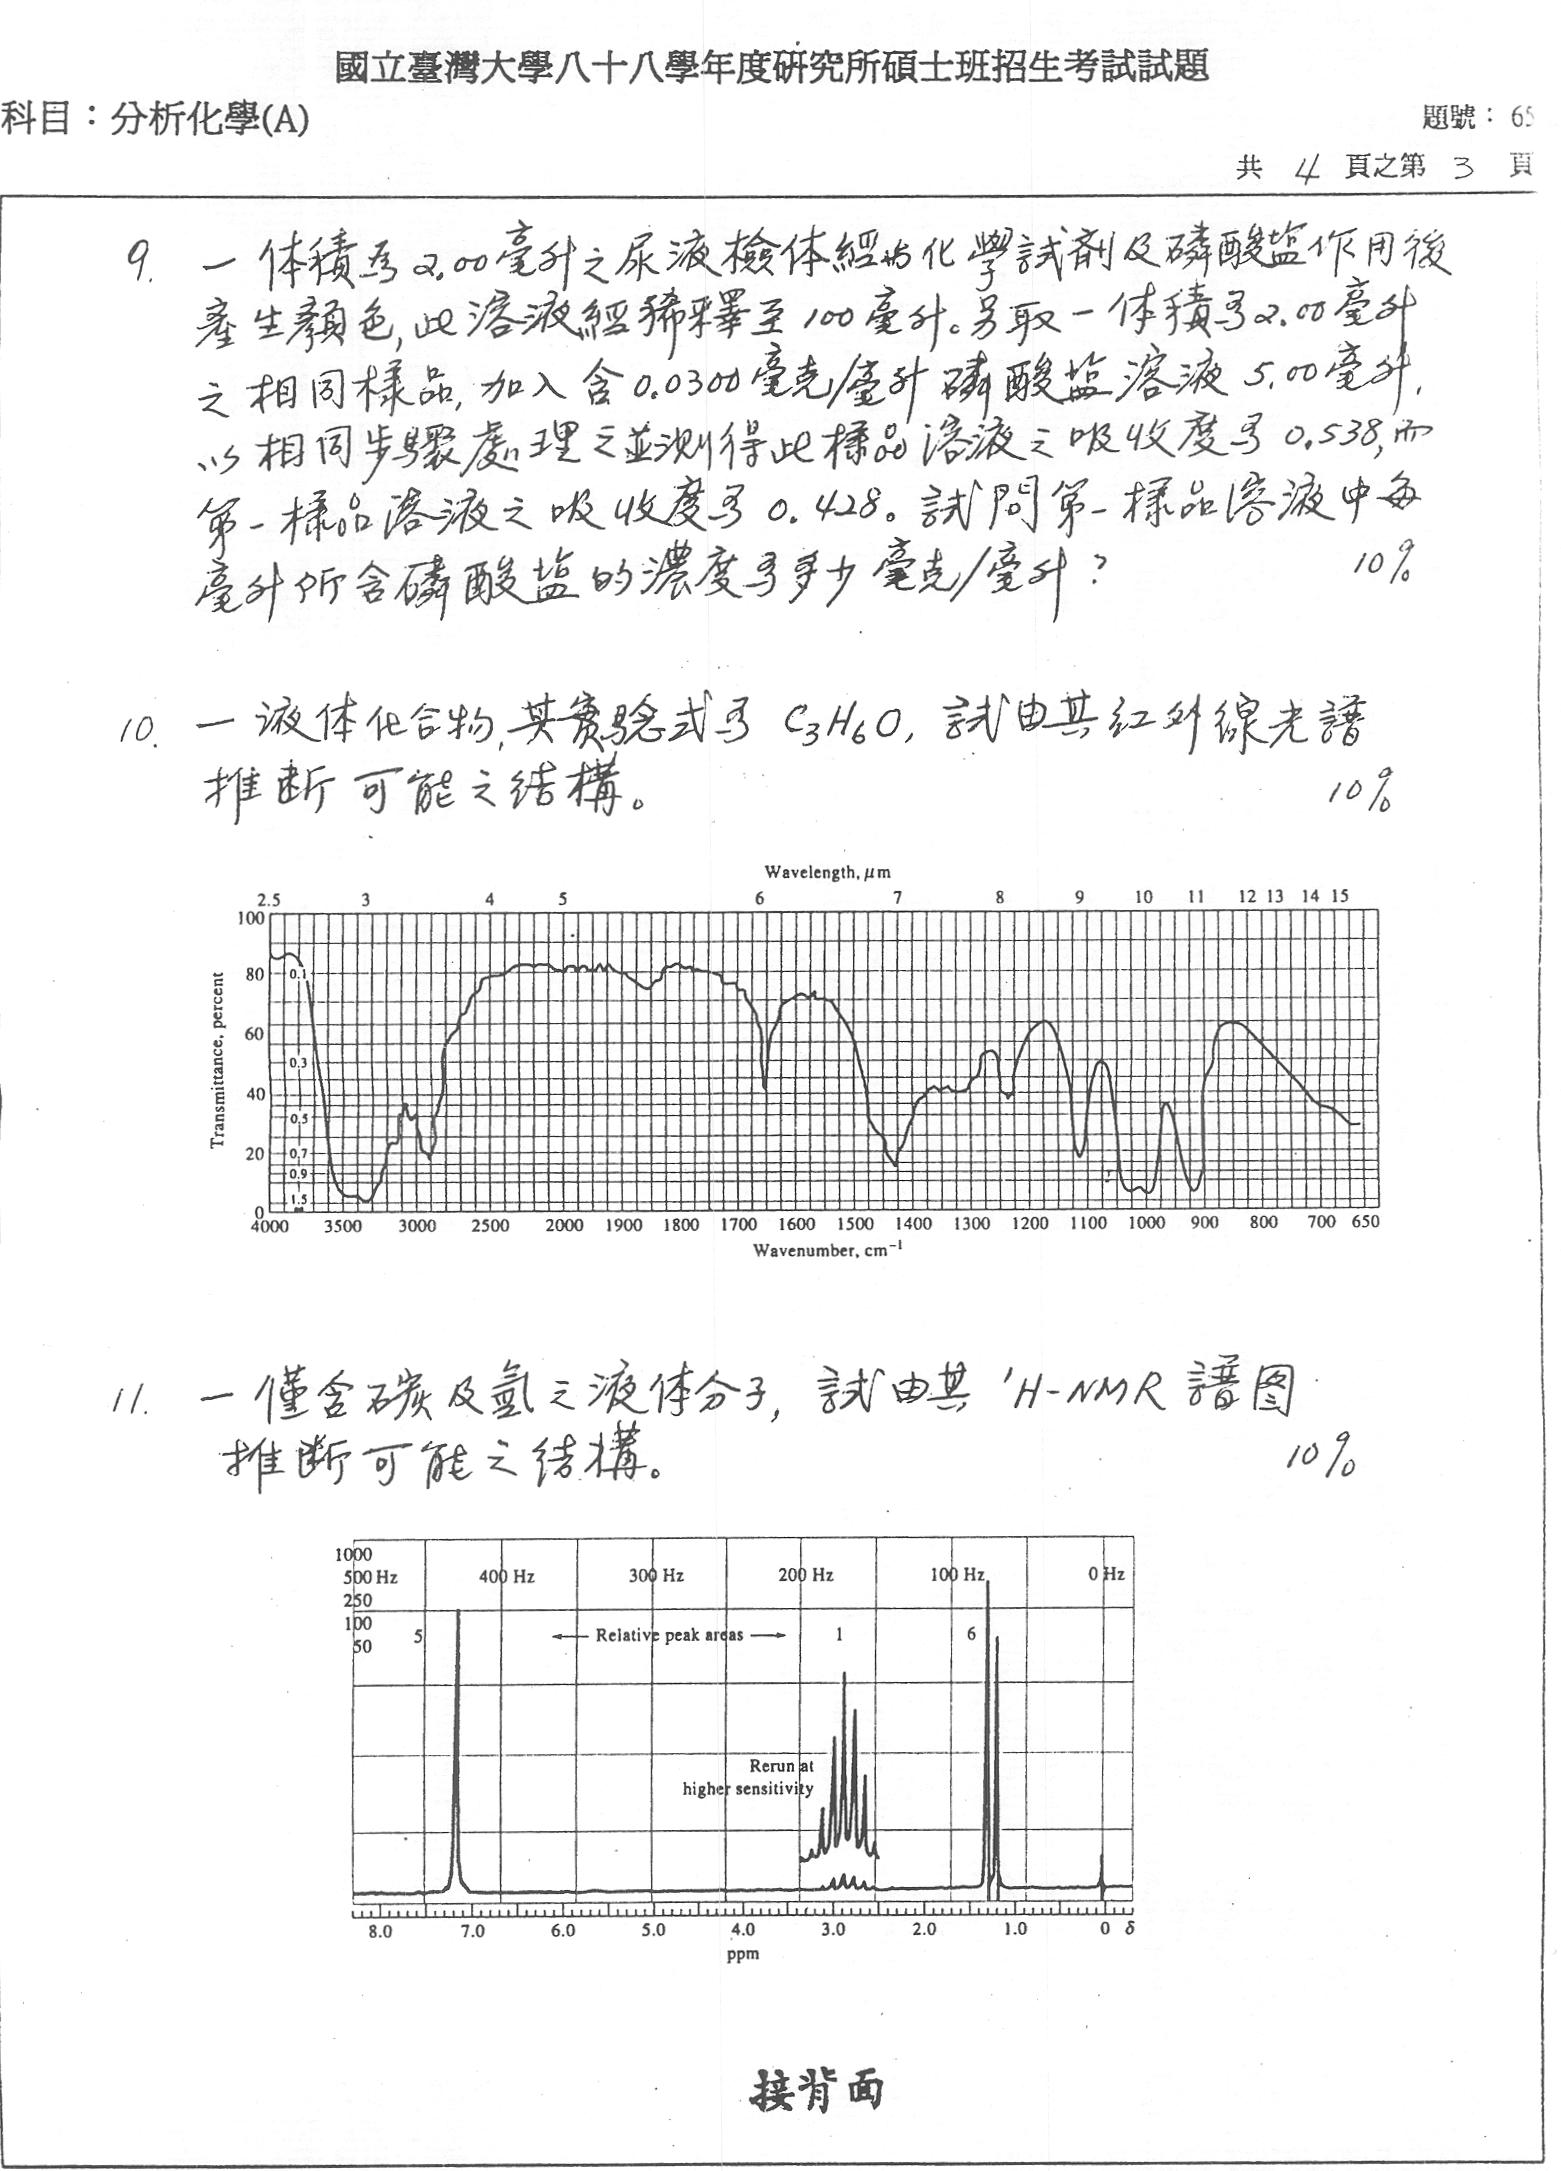 國立臺灣大學八十八學年度研究所碩士班招生考試試題
科目：分析化學(A)
題號：65
共 4 頁之第 3 頁
9. 一体積為2.00毫升之尿液檢体經与化學試劑及磷酸盐作用後
產生顏色,此溶液經稀釋至100毫升。另取一体積為2.00毫升
之相同樣品,加入含0.0300毫克/毫升磷酸盐溶液5.00毫升,
以相同步驟處理之並測得此樣品溶液之吸收度為0.538,而
第一樣品溶液之吸收度為0.428。試問第一樣品溶液中每
毫升所含磷酸盐的濃度為多少毫克/毫升? 10%
10. 一液体化合物,其實驗式為 C3H6O, 試由其紅外線光譜
推断可能之结構。 10%
Wavelength, μm
2.5 3 4 5 6 7 8 9 10 11 12 13 14 15
Transmittance, percent
100
80
60
40
20
0
0.1
0.3
0.5
0.7
0.9
1.5
4000 3500 3000 2500 2000 1900 1800 1700 1600 1500 1400 1300 1200 1100 1000 900 800 700 650
Wavenumber, cm⁻¹
11. 一僅含碳及氫之液体分子, 試由其 ¹H-NMR 譜图
推断可能之结構。 10%
1000
500 Hz 400 Hz 300 Hz 200 Hz 100 Hz 0 Hz
250
100
50
5 ← Relative peak areas → 1 6
Rerun at
higher sensitivity
8.0 7.0 6.0 5.0 4.0 3.0 2.0 1.0 0 δ
ppm
接背面